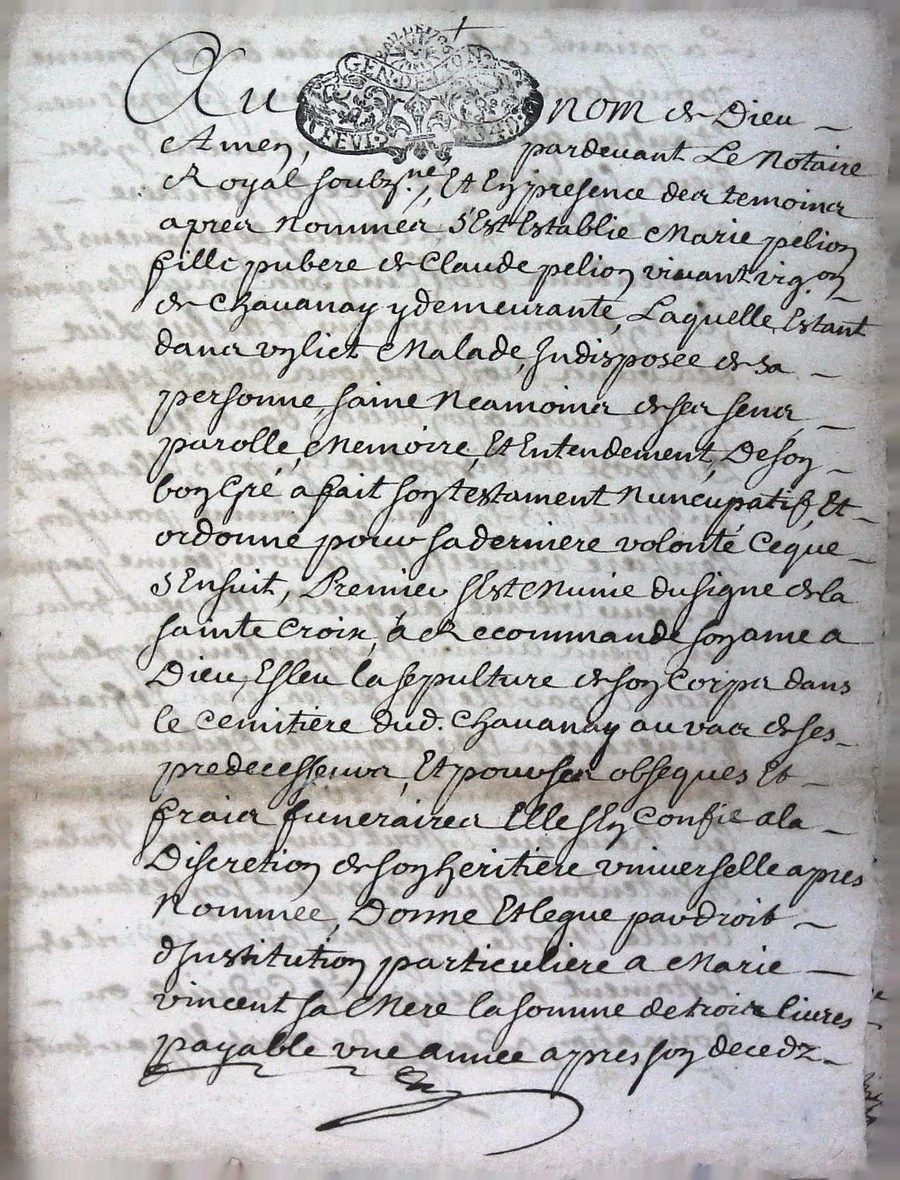 GEN·DE·LYON
Au nom de Dieu
Amen, pardevant Le Notaire
Royal soubzne., Et En presence des temoins
apres Nommes, s'Est Establie Marie pelion
fille pubere de Claude pelion vivant vigon
de Chavanay y demeurante, Laquelle, Estant
dans un lict Malade, Indisposée de sa
personne, saine Neamoins de ses sens
parolle, Memoire, Et Entendement, De son
bon Gré à fait son testament Nuncupatif, Et
ordonne pour sa derniere volonté Ceque
s'Ensuit, Premier s'Est Munie du signe de la
sainte Croix, à Recommandé son ame a
Dieu, Esleu la sepulture de son Corps dans
le Cemitiere dud. Chavanay au vas de ses
predecesseurs, Et pour ses obseques Et
frais funeraires Elle s'En Confie a la
Discretion de son heritiere universelle apres
Nommée, Donne Et legue par droit
d'Institution particuliere a Marie
vincent sa Mere la somme de trois livres
payable une année apres son decedz